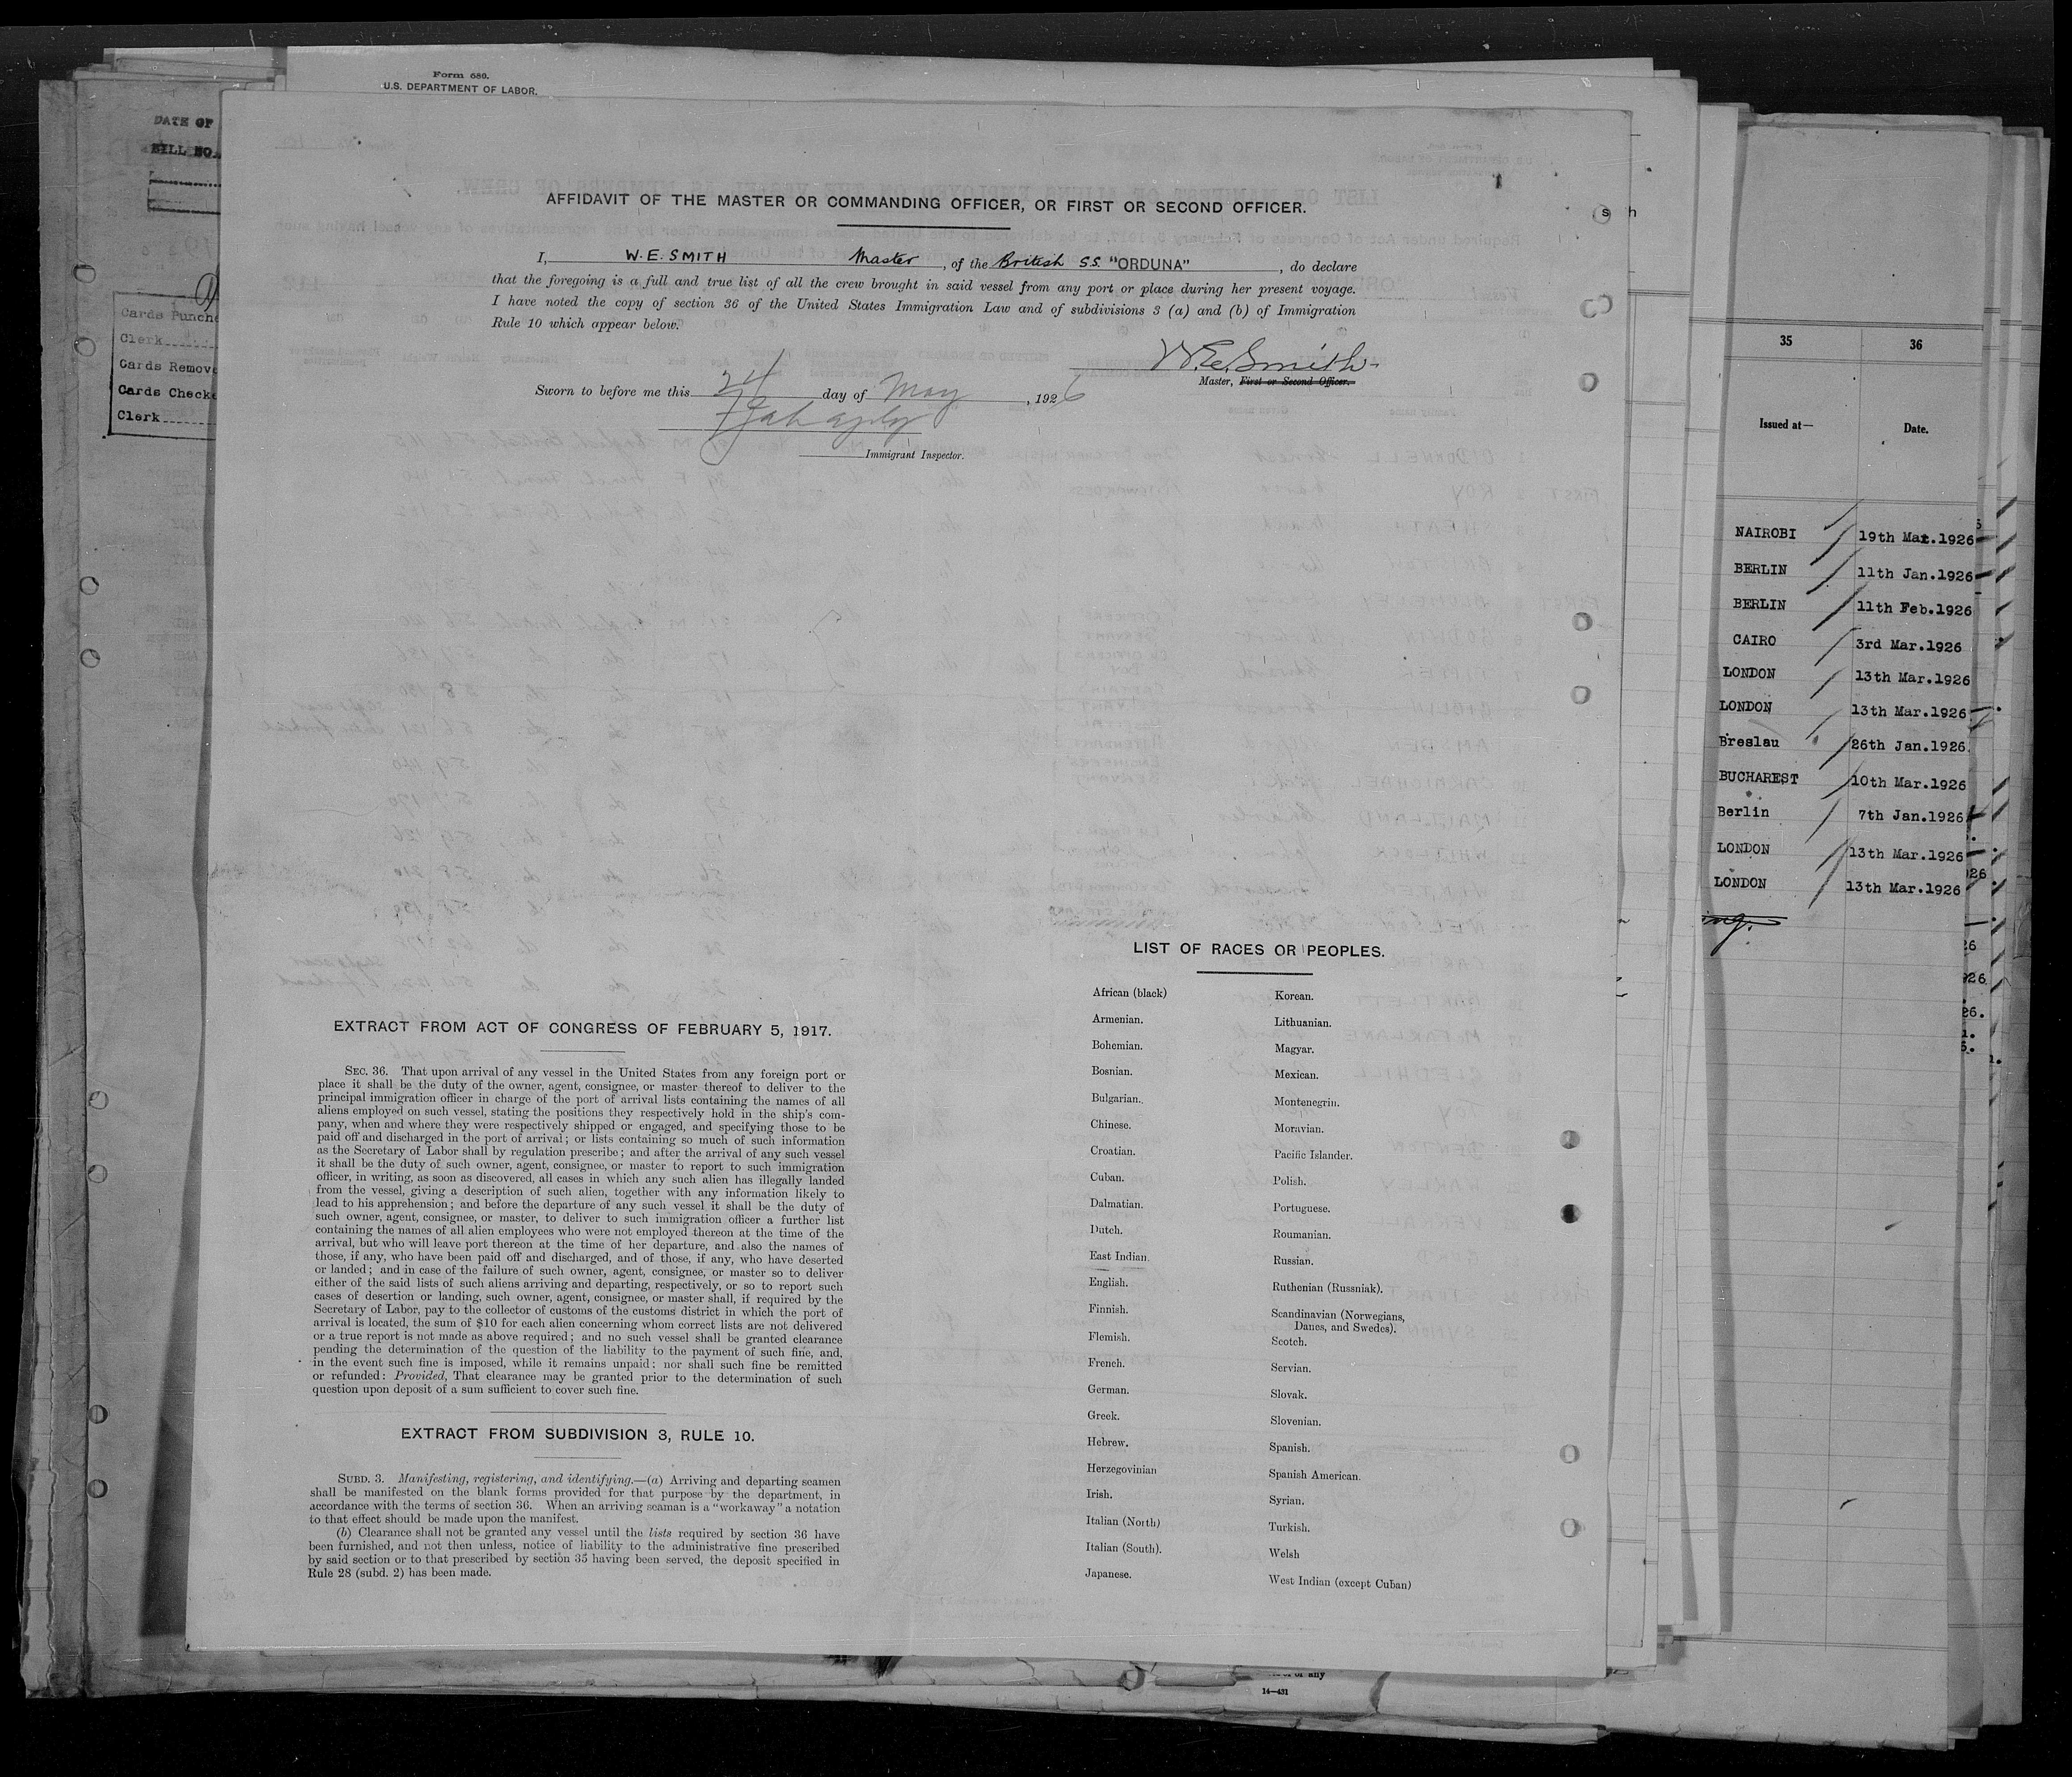 Form 680.
U.S. DEPARTMENT OF LABOR.
DATE OF
BILL NO.
Cards Punch
Clerk
Cards Remov
Cards Check
Clerk
AFFIDAVIT OF THE MASTER OR COMMANDING OFFICER, OR FIRST OR SECOND OFFICER.
I, W. E. SMITH Master, of the British SS. "ORDUNA", do declare
that the foregoing is a full and true list of all the crew brought in said vessel from any port or place during her present voyage.
I have noted the copy of section 36 of the United States Immigration Law and of subdivisions 3 (a) and (b) of Immigration
Rule 10 which appear below.
W.E. Smith
Master, First or Second Officer.
Sworn to before me this 24 day of May, 1926
Immigrant Inspector.
EXTRACT FROM ACT OF CONGRESS OF FEBRUARY 5, 1917.
SEC. 36. That upon arrival of any vessel in the United States from any foreign port or
place it shall be the duty of the owner, agent, consignee, or master thereof to deliver to the
principal immigration officer in charge of the port of arrival lists containing the names of all
aliens employed on such vessel, stating the positions they respectively hold in the ship's com-
pany, when and where they were respectively shipped or engaged, and specifying those to be
paid off and discharged in the port of arrival; or lists containing so much of such information
as the Secretary of Labor shall by regulation prescribe; and after the arrival of any such vessel
it shall be the duty of such owner, agent, consignee, or master to report to such immigration
officer, in writing, as soon as discovered, all cases in which any such alien has illegally landed
from the vessel, giving a description of such alien, together with any information likely to
lead to his apprehension; and before the departure of any such vessel it shall be the duty of
such owner, agent, consignee, or master, to deliver to such immigration officer a further list
containing the names of all alien employees who were not employed thereon at the time of the
arrival, but who will leave port thereon at the time of her departure, and also the names of
those, if any, who have been paid off and discharged, and of those, if any, who have deserted
or landed; and in case of the failure of such owner, agent, consignee, or master so to deliver
either of the said lists of such aliens arriving and departing, respectively, or so to report such
cases of desertion or landing, such owner, agent, consignee, or master shall, if required by the
Secretary of Labor, pay to the collector of customs of the customs district in which the port of
arrival is located, the sum of $10 for each alien concerning whom correct lists are not delivered
or a true report is not made as above required; and no such vessel shall be granted clearance
pending the determination of the question of the liability to the payment of such fine, and,
in the event such fine is imposed, while it remains unpaid: nor shall such fine be remitted
or refunded: Provided, That clearance may be granted prior to the determination of such
question upon deposit of a sum sufficient to cover such fine.
EXTRACT FROM SUBDIVISION 3, RULE 10.
SUBD. 3. Manifesting, registering, and identifying.—(a) Arriving and departing seamen
shall be manifested on the blank forms provided for that purpose by the department, in
accordance with the terms of section 36. When an arriving seaman is a "workaway" a notation
to that effect should be made upon the manifest.
(b) Clearance shall not be granted any vessel until the lists required by section 36 have
been furnished, and not then unless, notice of liability to the administrative fine prescribed
by said section or to that prescribed by section 35 having been served, the deposit specified in
Rule 28 (subd. 2) has been made.
LIST OF RACES OR PEOPLES.
African (black)
Armenian.
Bohemian.
Bosnian.
Bulgarian.
Chinese.
Croatian.
Cuban.
Dalmatian.
Dutch.
East Indian.
English.
Finnish.
Flemish.
French.
German.
Greek.
Hebrew.
Herzegovinian
Irish.
Italian (North)
Italian (South).
Japanese.
Korean.
Lithuanian.
Magyar.
Mexican.
Montenegrin.
Moravian.
Pacific Islander.
Polish.
Portuguese.
Roumanian.
Russian.
Ruthenian (Russniak).
Scandinavian (Norwegians,
Danes, and Swedes).
Scotch.
Servian.
Slovak.
Slovenian.
Spanish.
Spanish American.
Syrian.
Turkish.
Welsh
West Indian (except Cuban)
35 36
Issued at— Date.
NAIROBI 19th Mar.1926
BERLIN 11th Jan.1926
BERLIN 11th Feb.1926
CAIRO 3rd Mar.1926
LONDON 13th Mar.1926
LONDON 13th Mar.1926
Breslau 26th Jan.1926
BUCHAREST 10th Mar.1926
Berlin 7th Jan.1926
LONDON 13th Mar.1926
LONDON 13th Mar.1926
or any
14—431